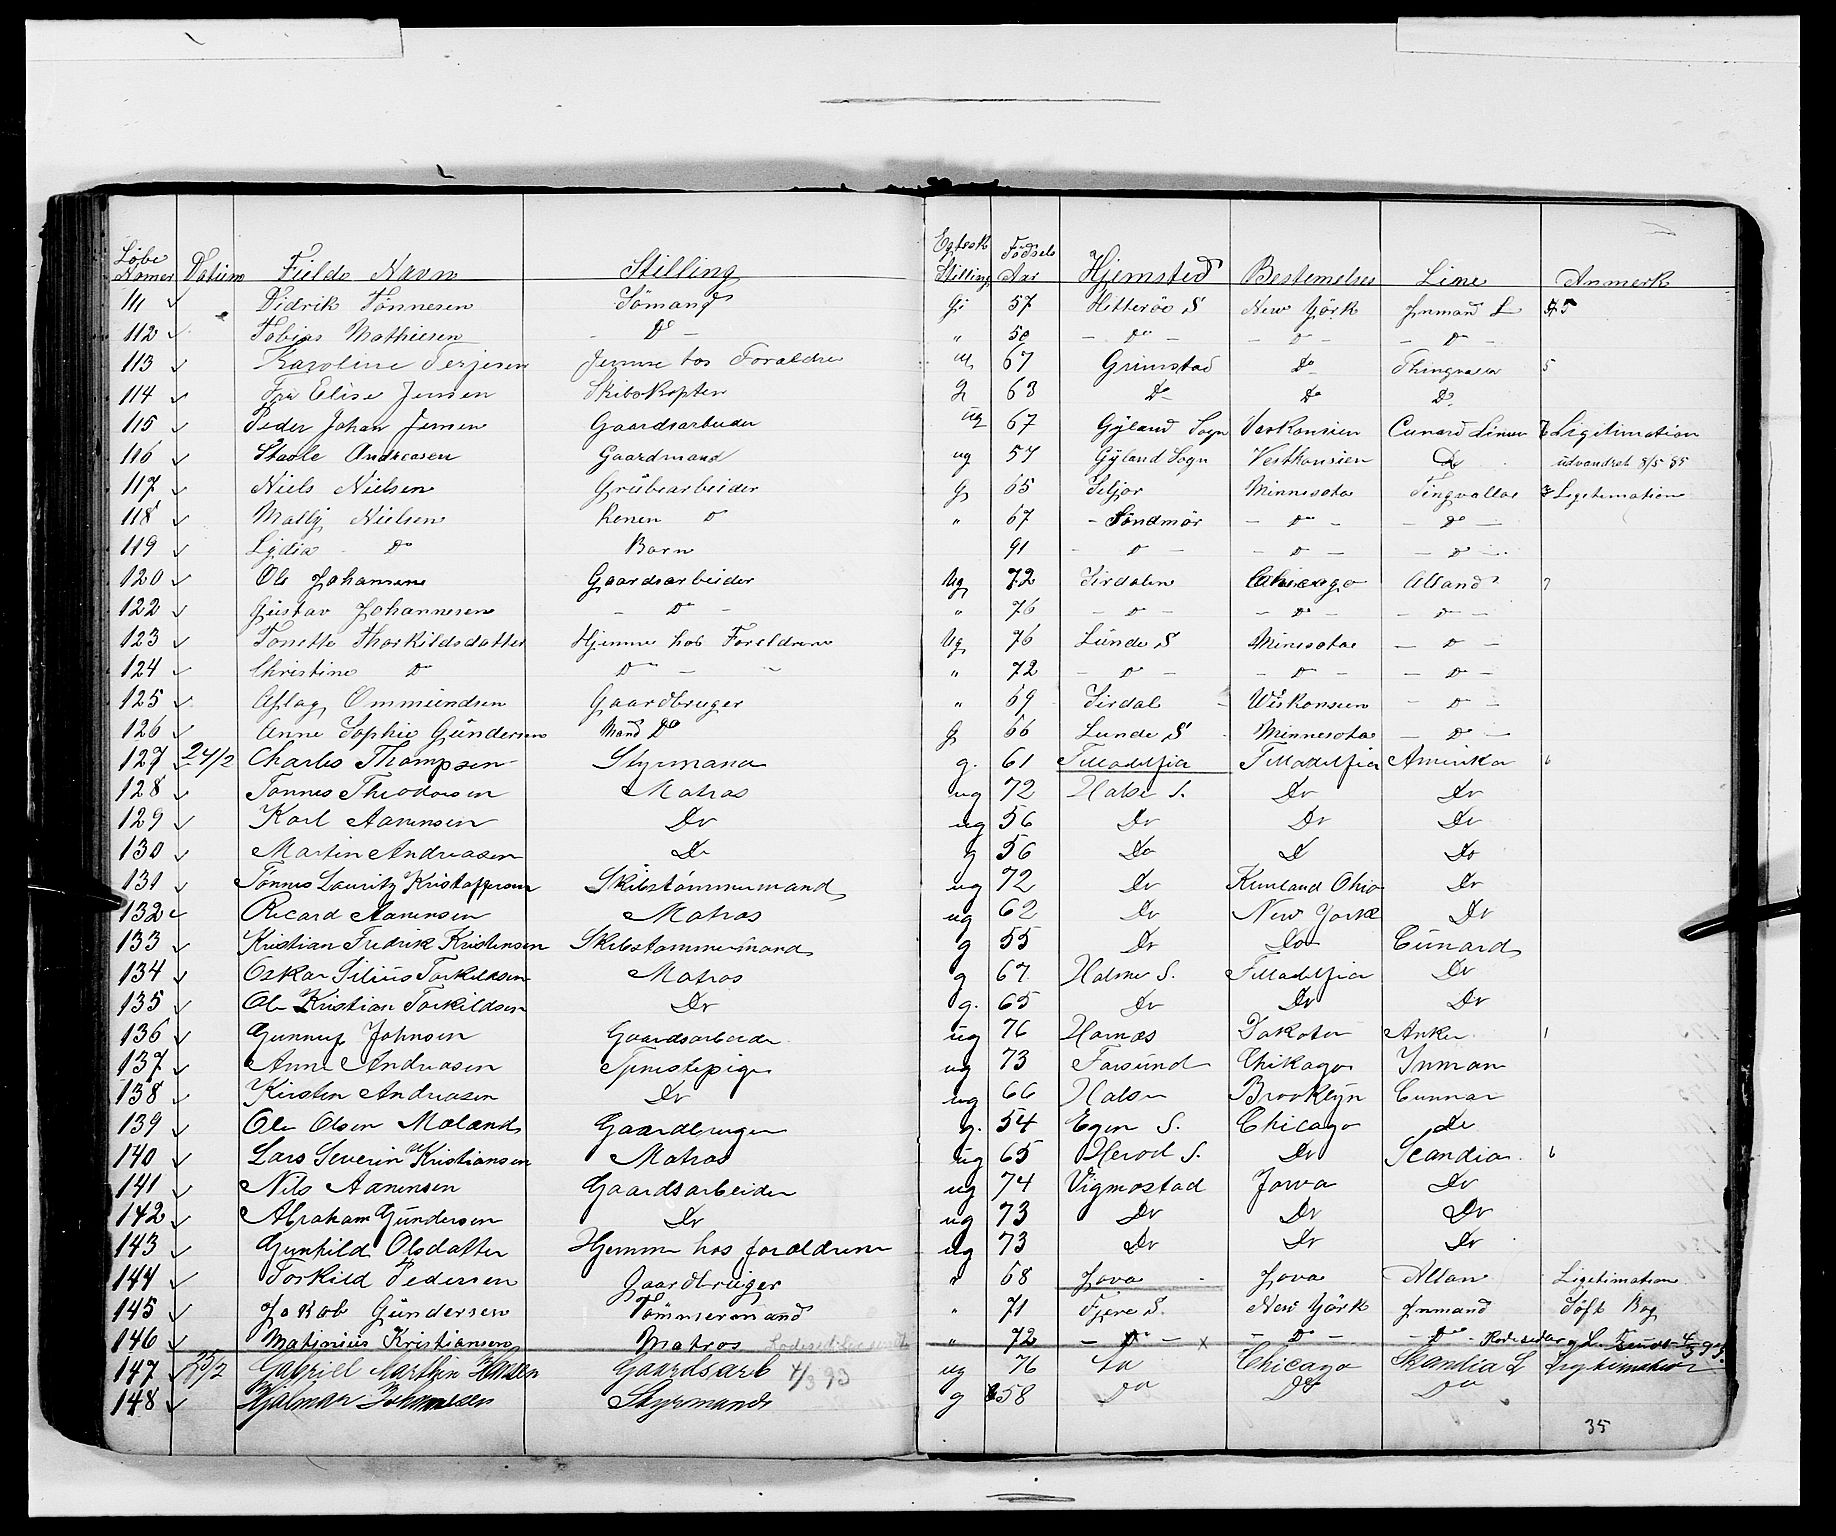 Löbe Nomer Datum Fulde Navn Stilling Egtesk Stilling Födsels Aar Hjemsted Bestemelses Linie Anmerk
111 Didrik Tönnesen Sömand G 57 Hitterőe S New Yörk Inmand L 5
112 Tobias Mathiesen — Do — " 50 — Do — — Do — — Do —
113 Karoline Terjesen Jemme hos Foraldre 67 Grimstad Do Thingvalla 5
114 Fru Elise Jensen Skibskapten G 63 Do Do Do
115 Peder Johan Jensen Gaardsarbeider ug 67 Gyland Sogn Veskonsien Cunard Linien Legitimation
116 Staale Andreasen Gaardmand ug 57 Gyland Sogn Vestkonsien Do udvandret 8/5 95
117 Niels Nielsen Grübearbeider G 65 Seljor Minnesota Tingvalla Legitimation
118 Mally Nielsen Konen Do " 67 - Söndmör — Do — — Do —
119 Lydia Do Barn 91 — Do — — Do — — Do —
120 Ole Johansen Gaardsarbeider Ug 72 Sirdalen Chicago Alland 7
122 Gustav Johannesen — Do — " 76 — Do — — Do — — Do —
123 Tonette Thorkildsdatter Hjemme hos Foreldrene Ug 76 Lünde S Minesota — Do —
124 Christine Do Do — " " 72 — Do — — Do — — Do —
125 Aslag Ommündsen Gaardbruger " 69 Sirdal Wiskonsien — Do —
126 Anne Sophie Gündersen Mand Do G 66 Lunde S Minnesota — Do —
127 24/2 Charles Thompsen Styrmand g. 61 Filladelfia Filladelfia Amerika 6
128 Tønnes Theodorsen Matros ug 72 Halse S. Do Do
129 Karl Aanensen Do ug 56 Do Do Do
130 Martin Andreasen Do g 56 Do D Do
131 Tønnes Lauritz Kristoffersen Skibstømmermand ug 72 Do Ohio Do
132 Ricard Aanensen Matros ug 62 Do New York Do
133 Kristian Fredrik Kristensen Skibstømmermand g 55 Do Do Cünard
134 Oskar Silius Torkildsen Matros g 67 Halse S. Filladelfia Do
135 Ole Kristian Torkildsen Do g. 65 Do Do Do
136 Gunnuf Johnsen Gaardsarbeider ug 76 Hornæs Dakota Anker 1
137 Anne Andreasen Tjenstepige ug 73 Farsünd Chikago Inman
138 Kirsten Andreasen Do ug 66 Halse Brooklyn Cunnar
139 Ole Olsen Moland Gaardbruger g. 54 Egen S. Chicago Do
140 Lars Severin Kristiansen Matros ug 65 Herod S. Do Scandia 6
141 Nils Aanensen Gaardsarbeider ug 74 Vigmostad Jowa Do
142 Abraham Gündersen Do ug 73 Do Do Do
143 Gunhild Olsdatter Hjemme hos foraldrene ug 73 Do Do Do
144 Torkild Pedersen Gaardbruger " 68 Jova Jova Allan Legitimation
145 Jakob Gündersen Tömmermand " 71 Fjere S. New Yörk Inmand Töft Bog
146 Matinius Kristiansen Matros " 72 — Do — x — Do — — Do —
147 25/2 Gabriel Marthin Hansen Gaardsarb 4/3 93 ug 76 Do Chicago Skandia L Legitimation
148 Hjalmar Johannesen Styrmand g 58 Do Do Do
35